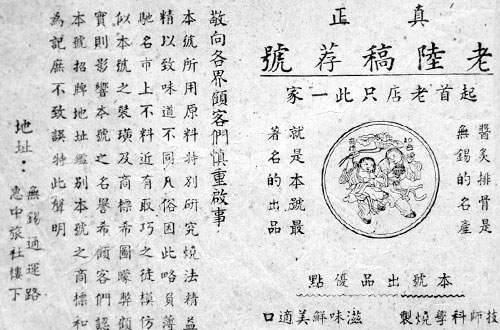 真正
老陸稿荐號
起首老店只此一家
醬炙排骨是
無錫的名產
就是本號最
著名的出品
本號出品優點
技師科學燒製 滋味鮮美適口
敬向各界顧客們慎重啟事
本號所用原料特別研究燒法精益
精以致味道不同凡俗因此略負薄
馳名市上不料近有取巧之徒模仿
似本號之裝璜及商標希圖矇弊顧
實則影響本號之名譽希顧客們認
本號招牌地址鑑別本號之商標和
為記庶不致誤特此聲明
地址：無錫通運路
惠中旅社樓下